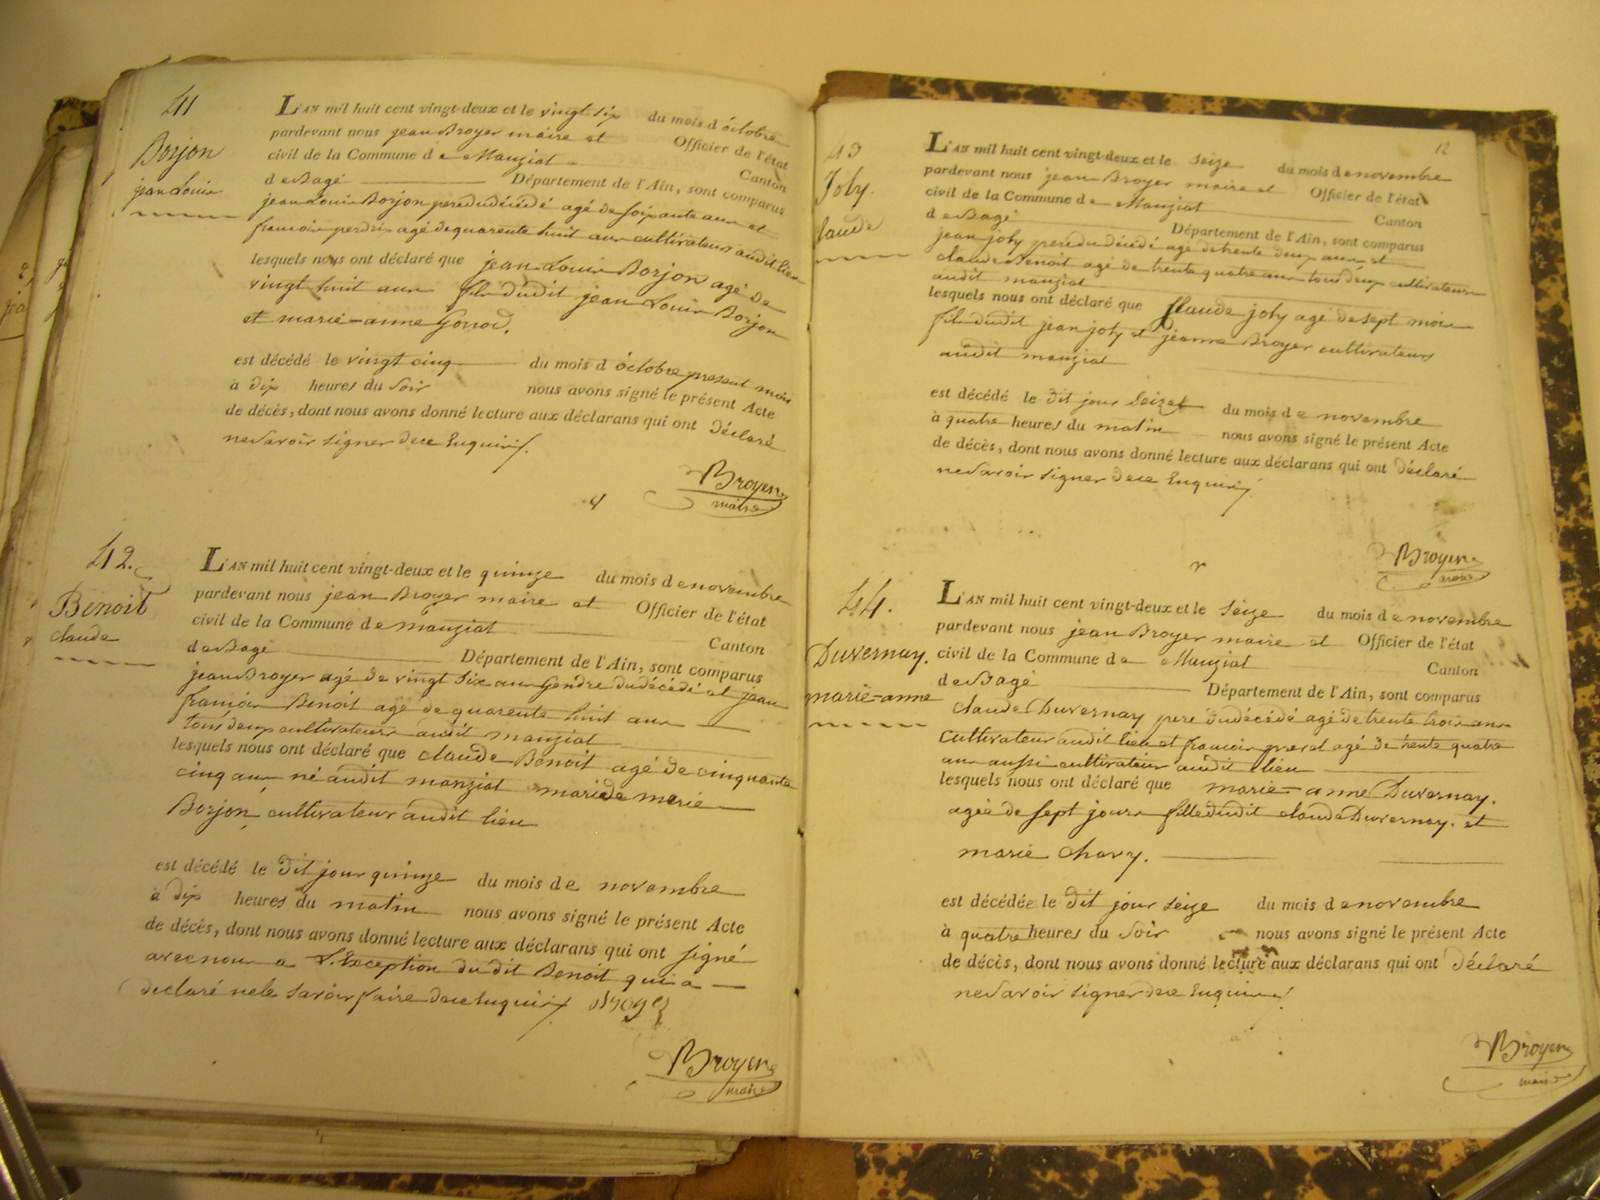 41
Borjon
jean Louis
L'AN mil huit cent vingt-deux et le vingt six du mois d'octobre
pardevant nous jean Broyer maire et Officier de l'état
civil de la Commune de Manziat Canton
de Bagé Département de l'Ain, sont comparus
jean Louis Borjon pere du décédé agé de soixante ans et
francois perdrix agé de quarente huit ans cultivateurs audit lieu
lesquels nous ont déclaré que jean Louis Borjon agé de
vingt huit ans fils dudit jean Louis Borjon
et marie=anne Gonod.
est décédé le vingt cinq du mois d'octobre present mois
à dix heures du soir nous avons signé le présent Acte
de décès, dont nous avons donné lecture aux déclarans qui ont déclaré
ne savoir signer de ce Enquis /.
Broyer
maire
42.
Benoit
claude
L'AN mil huit cent vingt-deux et le quinze du mois de novembre
pardevant nous jean Broyer maire et Officier de l'état
civil de la Commune de manziat Canton
de Bagé Département de l'Ain, sont comparus
jean Broyer agé de vingt six ans Gendre du décédé et jean
francois Benoit agé de quarente huit ans
tous deux cultivateurs audit manziat
lesquels nous ont déclaré que claude Benoit agé de cinquante
cinq ans né audit manziat marié de marie
Borjon, cultivateur audit lieu
est décédé le dit jour quinze du mois de novembre
à dix heures du matin nous avons signé le présent Acte
de décès, dont nous avons donné lecture aux déclarans qui ont signé
avec nous a L'Exception du dit Benoit qui a
declaré ne le savoir faire de ce Enquis /.
Broyer
maire
12
43
Joly.
Claude
L'AN mil huit cent vingt-deux et le seize du mois de novembre
pardevant nous jean Broyer maire et Officier de l'état
civil de la Commune de Manziat Canton
de Bagé Département de l'Ain, sont comparus
jean joly pere du décédé agé de trente deux ans et
claude Benoit agé de trente quatre ans tous deux cultivateurs
audit manziat
lesquels nous ont déclaré que Claude joly agé de sept mois
fils dudit jean joly et jeanne Broyer cultivateurs
audit manziat
est décédé le dit jour seize du mois de novembre
à quatre heures du matin nous avons signé le présent Acte
de décès, dont nous avons donné lecture aux déclarans qui ont déclaré
ne savoir signer de ce Enquis /
Broyer
maire
44.
Duvernay.
marie=anne
L'AN mil huit cent vingt-deux et le seize du mois de novembre
pardevant nous jean Broyer maire et Officier de l'état
civil de la Commune de Manziat Canton
de Bagé Département de l'Ain, sont comparus
claude Duvernay pere du décédé agé de trente trois ans
cultivateur audit lieu et francois agé de trente quatre
ans aussi cultivateur audit lieu
lesquels nous ont déclaré que marie=anne Duvernay.
agée de sept jours fille dudit claude Duvernay. et
marie Chavy.
est décédée le dit jour seize du mois de novembre
à quatre heures du soir nous avons signé le présent Acte
de décès, dont nous avons donné lecture aux déclarans qui ont déclaré
ne savoir signer de ce Enquis /
Broyer
maire